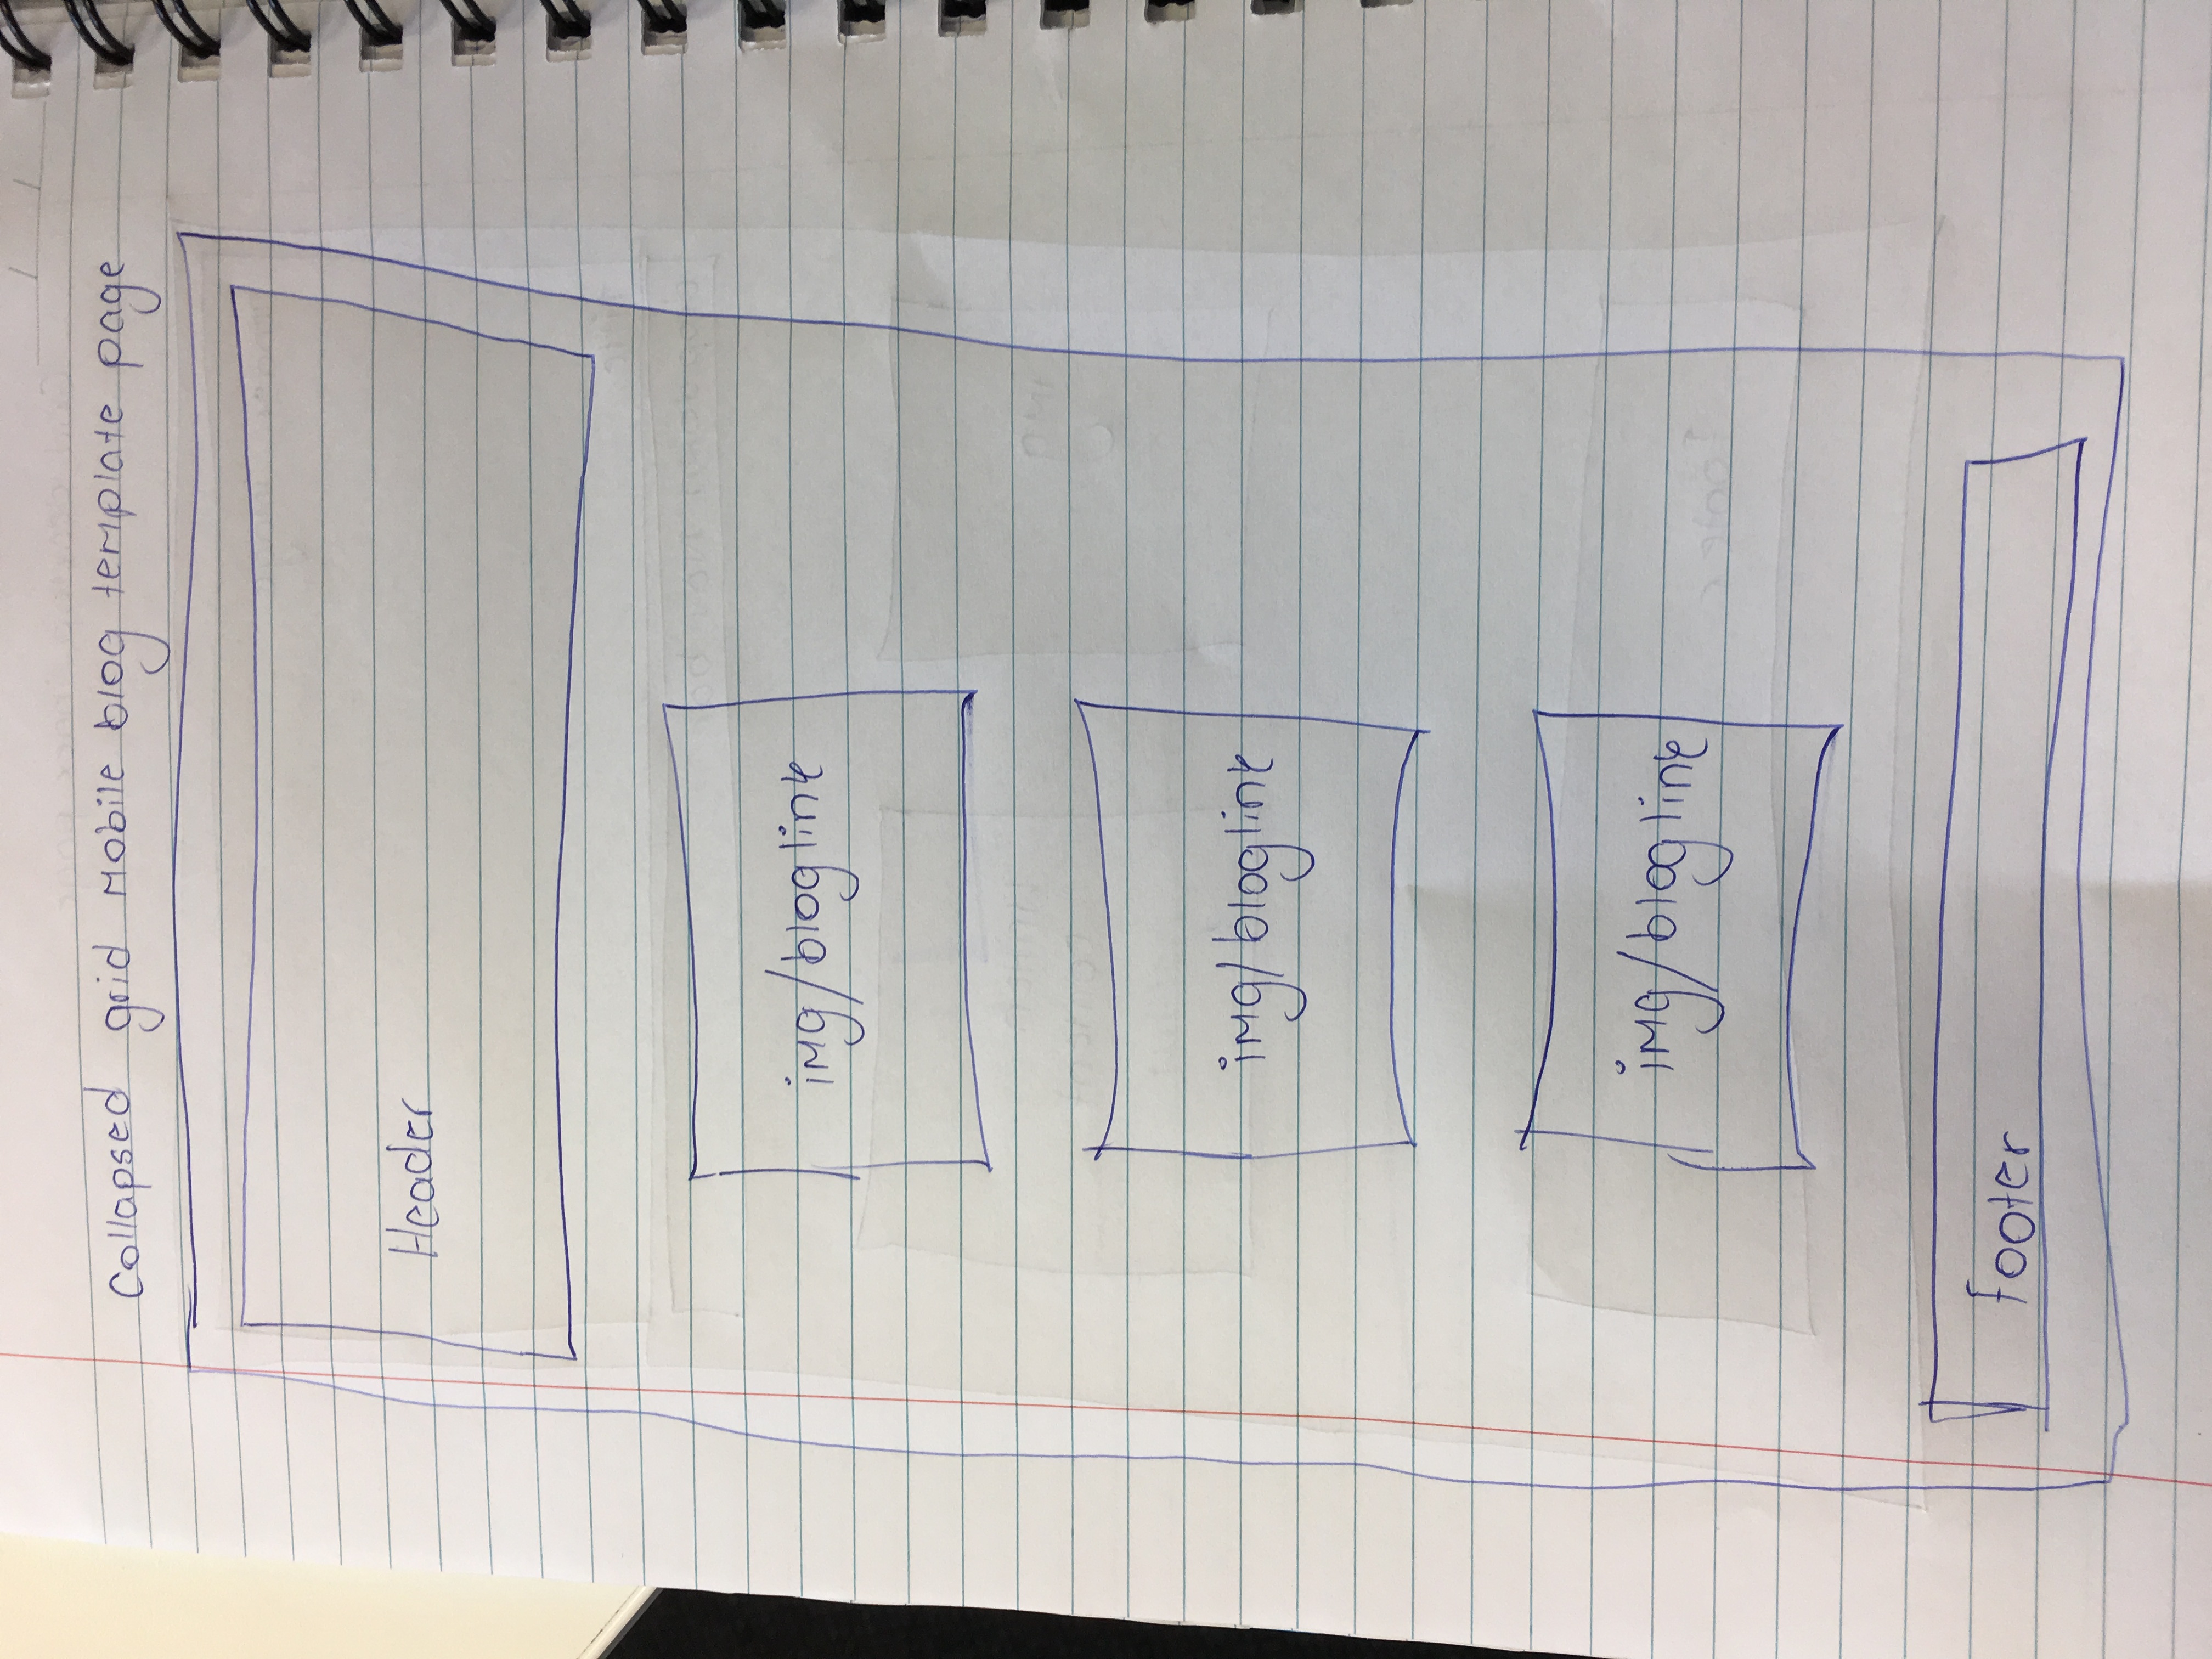 Collapsed grid Mobile blog template page
Header
img/bloglink
img/bloglink
img/bloglink
footer